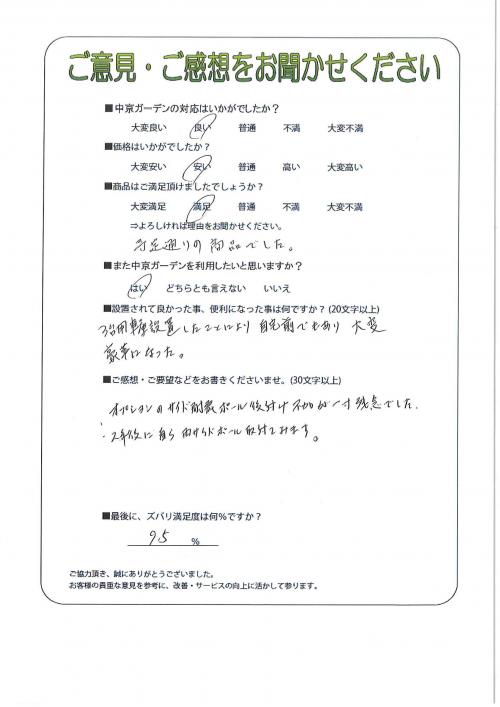 ご意見・ご感想をお聞かせください
■中京ガーデンの対応はいかがでしたか？
大変良い 良い 普通 不満 大変不満
■価格はいかがでしたか？
大変安い 安い 普通 高い 大変高い
■商品はご満足頂けましたでしょうか？
大変満足 満足 普通 不満 大変不満
⇒よろしければ理由をお聞かせください。
予定通りの商品でした。
■また中京ガーデンを利用したいと思いますか？
はい どちらとも言えない いいえ
■設置されて良かった事、便利になった事は何ですか？(20文字以上)
3台用車庫設置したことにより 自宅前でもあり 大変
豪華になった。
■ご感想・ご要望などをお書きくださいませ。(30文字以上)
オプションのサイド 耐震 ポール 後付け 不可が 残念でした.
に自ら サイドポール取付ております。
■最後に、ズバリ満足度は何％ですか？
95 ％
ご協力頂き、誠にありがとうございました。
お客様の貴重な意見を参考に、改善・サービスの向上に活かして参ります。